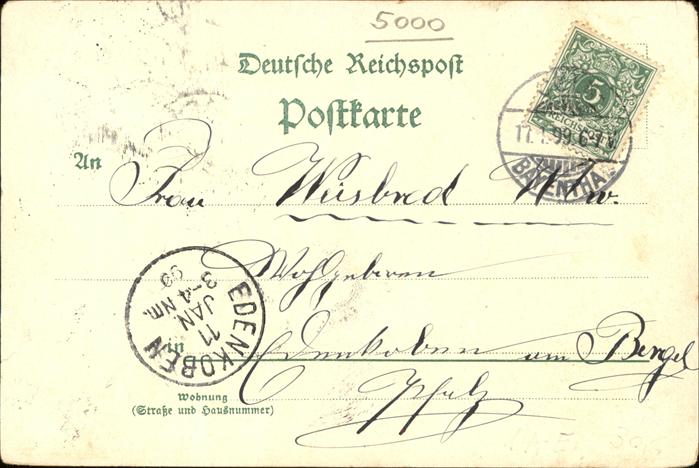 5000
Deutsche Reichspost
Postkarte
5
REICHSPOST
11.1.99.6-7V
BAYENTHAL
An
Frau Wwe.
Wohlgeboren
EDENKOBEN
11
JAN
3-4 Nm.
99
in Edenkoben am Bergel
Pfalz
Wohnung
(Straße und Hausnummer)